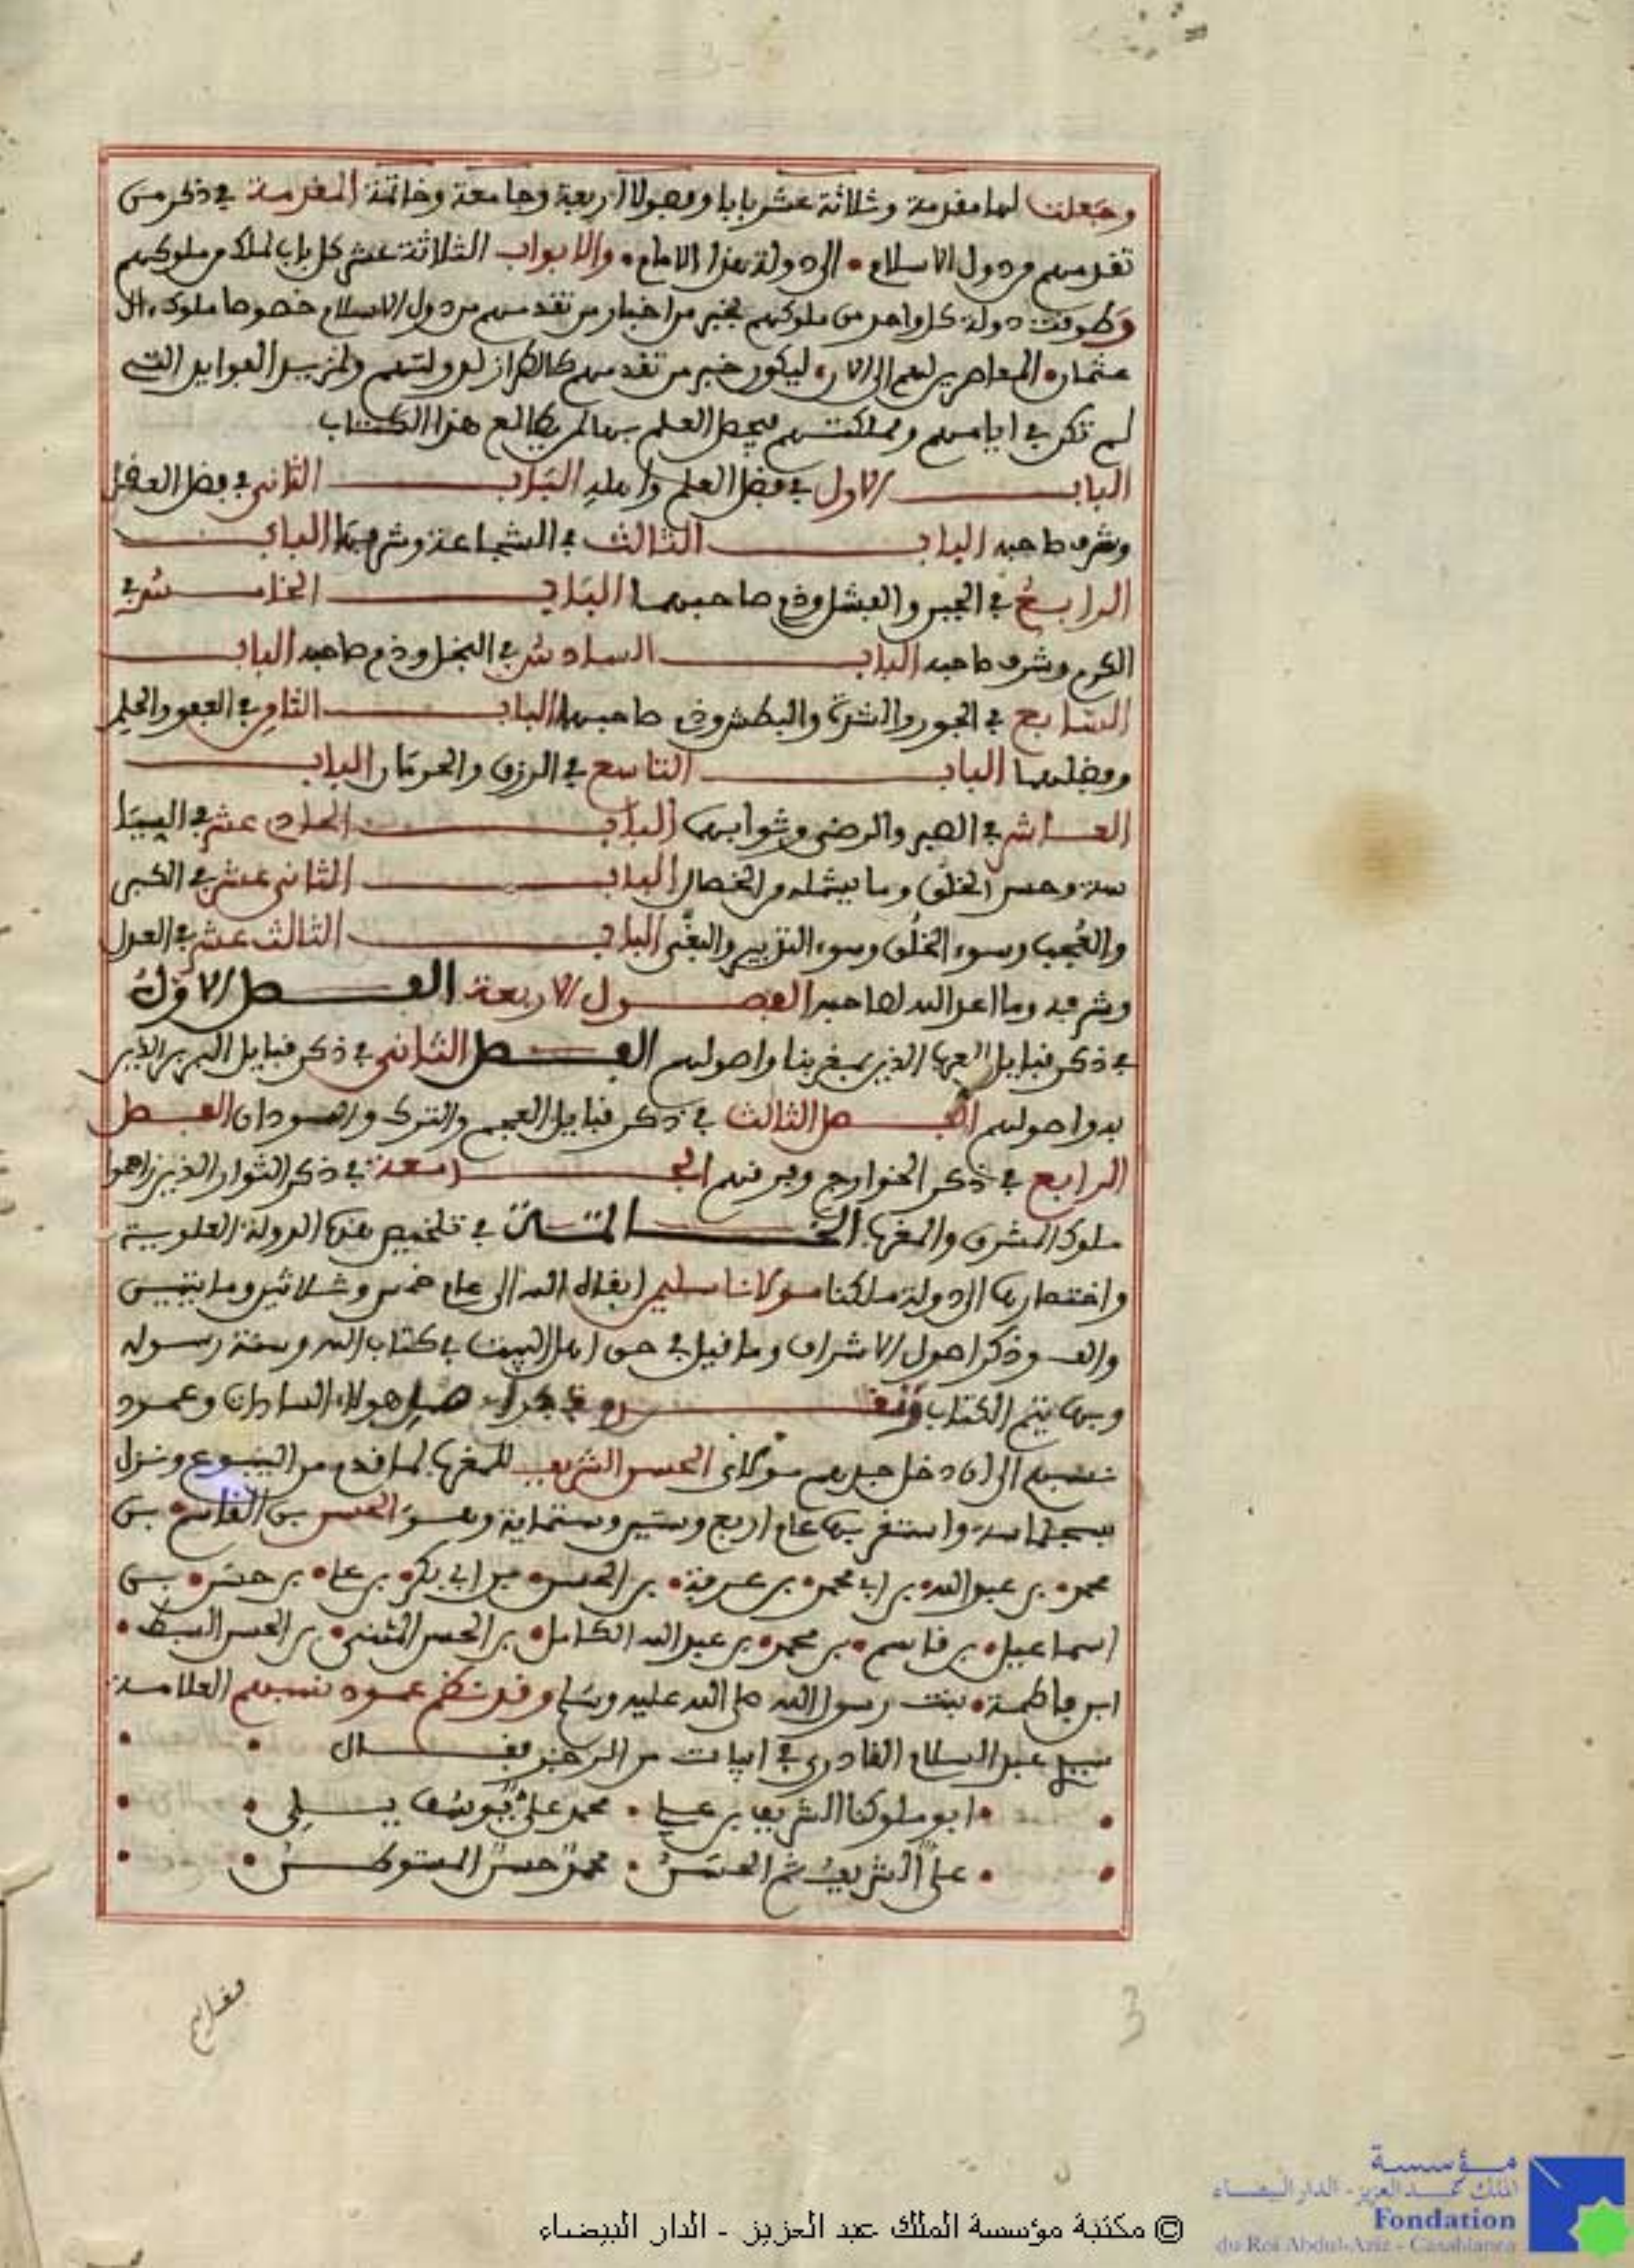 وجعلت لها مقدمة وثلاثة عشر بابا وفصولا اربعة وجامعة وخاتمة المقدمة في ذكر من
تقدمهم من دول الاسلام • الى دولة هذا الامام • والابواب الثلاثة عشر كل باب لملك من ملوكهم
وطوقت دولة كل واحد من ملوكهم بخبر من اخبار من تقدمهم من دول الاسلام خصوصا ملوك ءال
عثمان • المعاصرين لهم الى الان • ليكون خبر من تقدمهم كالطراز لدولتهم ولمزيد الفوايد التي
لم تكن في ايامهم ومملكتهم فيحصل العلم بها لمن يطالع هذا الكتاب
الباب الاول في فضل العلم واهله الباب الثاني في فضل العقل
وشرف صاحبه الباب الثالث في الشجاعة وشرفها الباب
الرابع في الجبن والفشل وذم صاحبهما الباب الخامس في
الكرم وشرف صاحبه الباب السادس في البخل وذم صاحبه الباب
السابع في الجور والشدة والبطش وذم صاحبها الباب الثامن في العفو والحلم
وفضلهما الباب التاسع في الرزق والحرمان الباب
العاشر في الصبر والرضى وثوابها الباب الحادي عشر في السيا
سة وحسن الخلق وما يشمله من الخصال الباب الثاني عشر في الكبر
والعجب وسوء الخلق وسوء التدبير والبغي الباب الثالث عشر في العدل
وشرفه وما اعد الله لصاحبه الفصول الاربعة الفصل الاول
في ذكر قبايل العرب الذين بمغربنا واصولهم الفصل الثاني في ذكر قبايل البربر الذين
به واصولهم الفصل الثالث في ذكر قبايل العجم والترك والسودان الفصل
الرابع في ذكر الخوارج وفرقهم الجامعة في ذكر الثوار الذين زاحموا
ملوك المشرق والمغرب الخاتمة في تلخيص هذه الدولة العلوية
واختصارها الى دولة ملكنا مولانا سليمن ابقاه الله الى عام خمس وثلاثين ومايتين
والف وذكر اصول الاشراف وما قيل في حق اهل البيت في كتاب الله وسنة رسوله
وبها يتم الكتاب هولاء السادات وعمود
نسبهم الى ان دخل جدهم مولاي الحسن الشريف للمغرب لما قدم من الينبوع ونزل
بسجلماسة واستقر بها عام اربع وستين وستماية وهو الحسن بن القاسم • بن
محمد • بن عبد الله • بن ابي محمد • بن عرفة • بن الحسن • بن ابي بكر • بن علي • بن حسن • بن
اسماعيل • بن قاسم • بن محمد • بن عبد الله الكامل • بن الحسن المثنى • بن الحسن السبط •
ابن فاطمة • بنت رسول الله صلى الله عليه وسلم وقد نظم عمود نسبهم العلامة
سيدي عبد السلام القادري في ابيات من الرجز فقال
• ابو ملوكنا الشريف بن علي • محمد علي يوسف يلي •
• علي الشريف ثم الحسن • محمد حسن المستوطن •
3
© مكتبة مؤسسة الملك عبد العزيز - الدار البيضاء
مؤسسة
الملك عبد العزيز - الدار البيضاء
Fondation
du Roi Abdul-Aziz - Casablanca